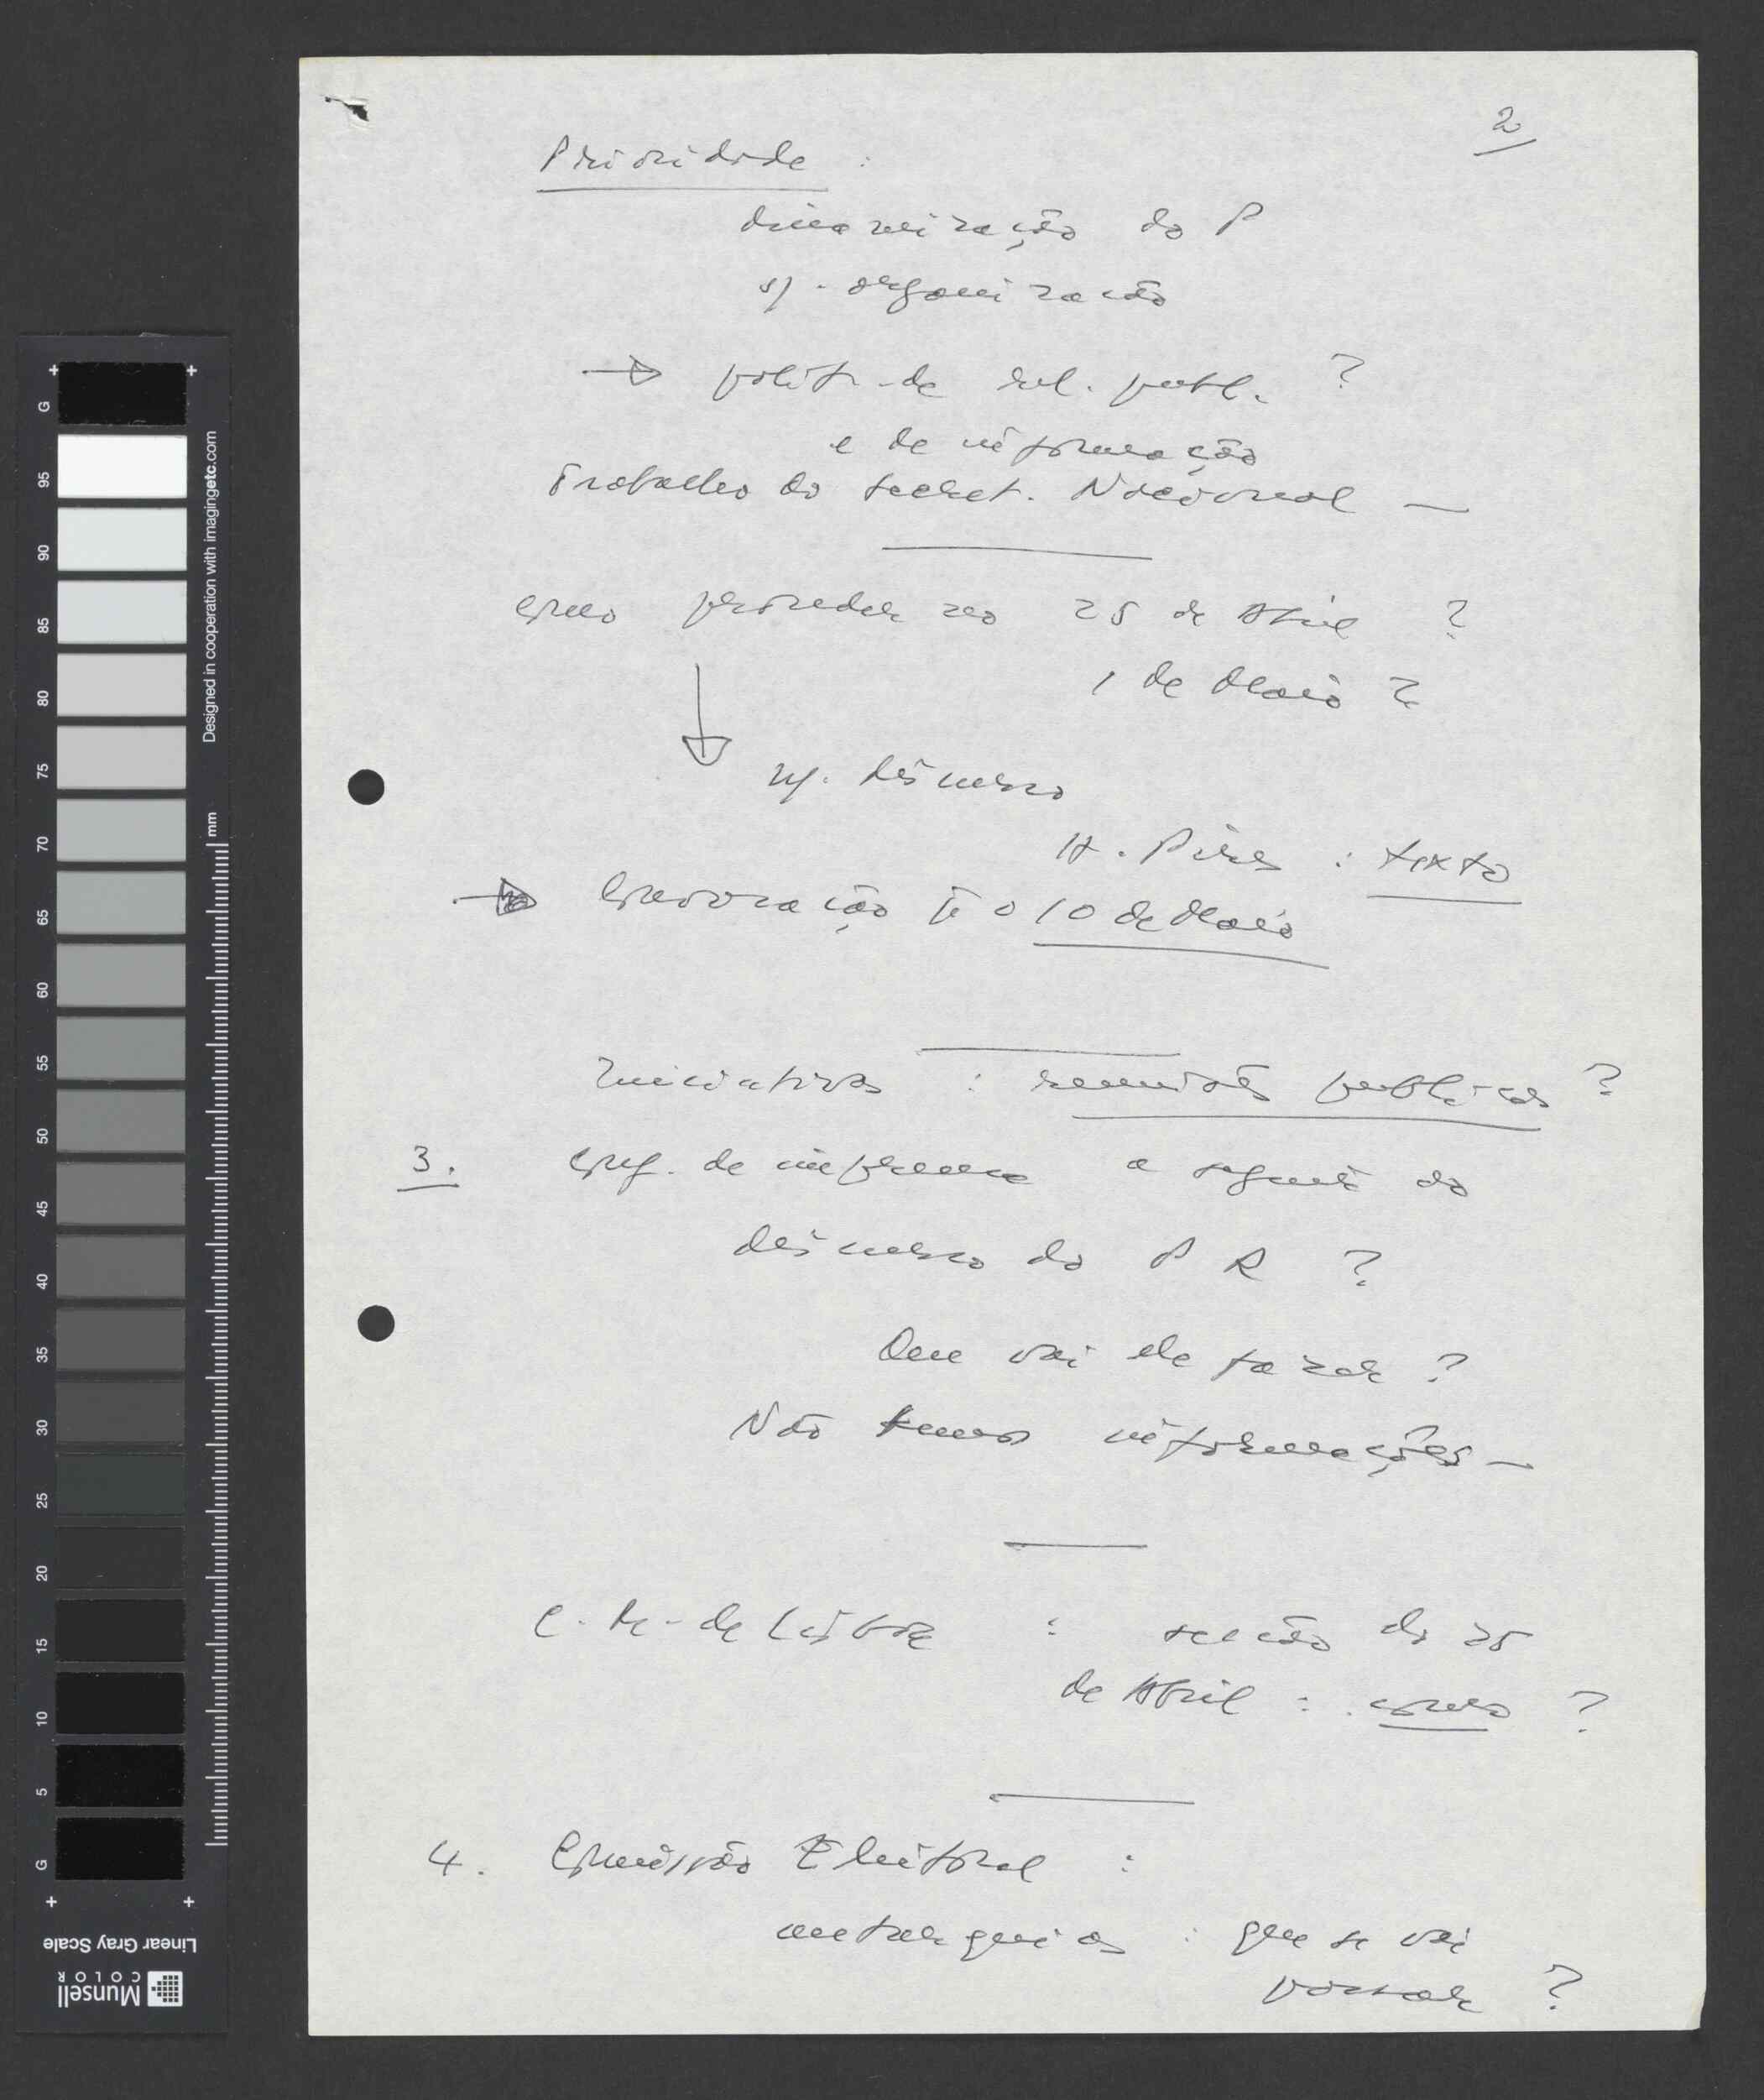 2
Prioridade :
dinamização do P
s/. organização
→ polít. de rel. publ. ?
e de informação
Trabalho do Secret. Nacional —
Como proceder no 25 de Abril ?
1 de Maio ?
discurso
H. Pires : texto
→ Convocação 10 de Maio
Iniciativas : reuniões públicas ?
3. Conf. de imprensa a seguir ao
discurso do P R ?
Que vai ele fazer ?
Não temos informações —
C. M. de Lisboa : sessão do 25
de Abril : como ?
4. Comissão Eleitoral :
autarquias : que se vai
passar ?
G 95 90 85 80 75 70 65 60 55 50 45 40 35 30 25 20 15 10 5 G
Designed in cooperation with imagingetc.com
mm
Linear Gray Scale
Munsell
COLOR